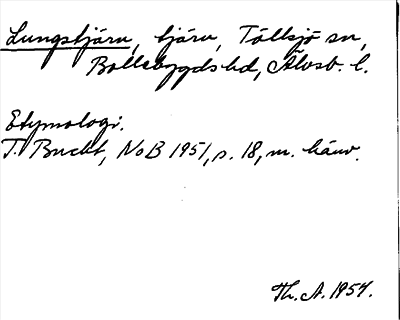 Lungstjärn, tjärn, Töllsjö sn,
Bollebygds hd, Älvsb. l.
Etymologi.
T. Bucht, NoB 1951, s. 18, m. hänv.
Th. A. 1957.